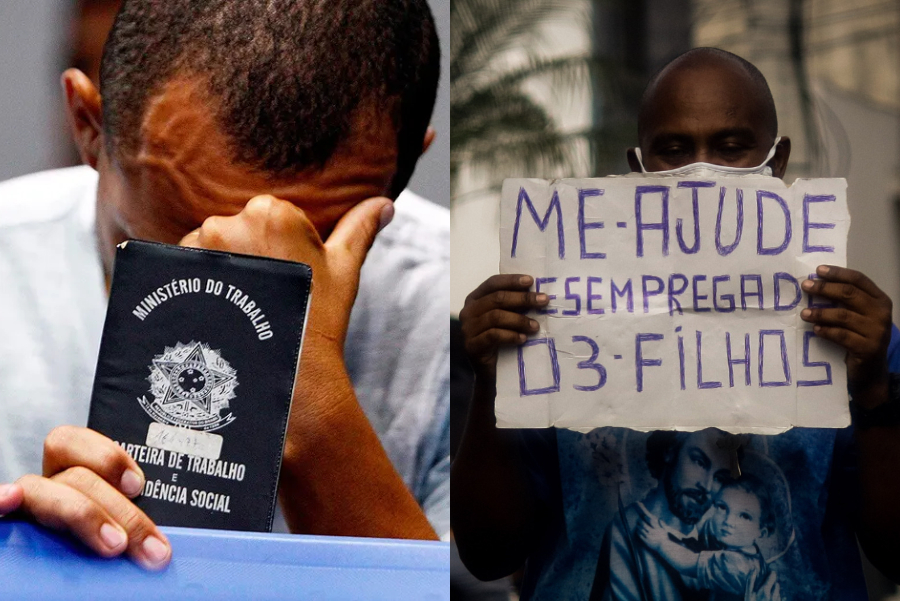 MINISTÉRIO DO TRABALHO
ARTEIRA DE TRABALHO
E
IDÊNCIA SOCIAL
ME-AJUDE
DESEMPREGADO
03-FILHOS